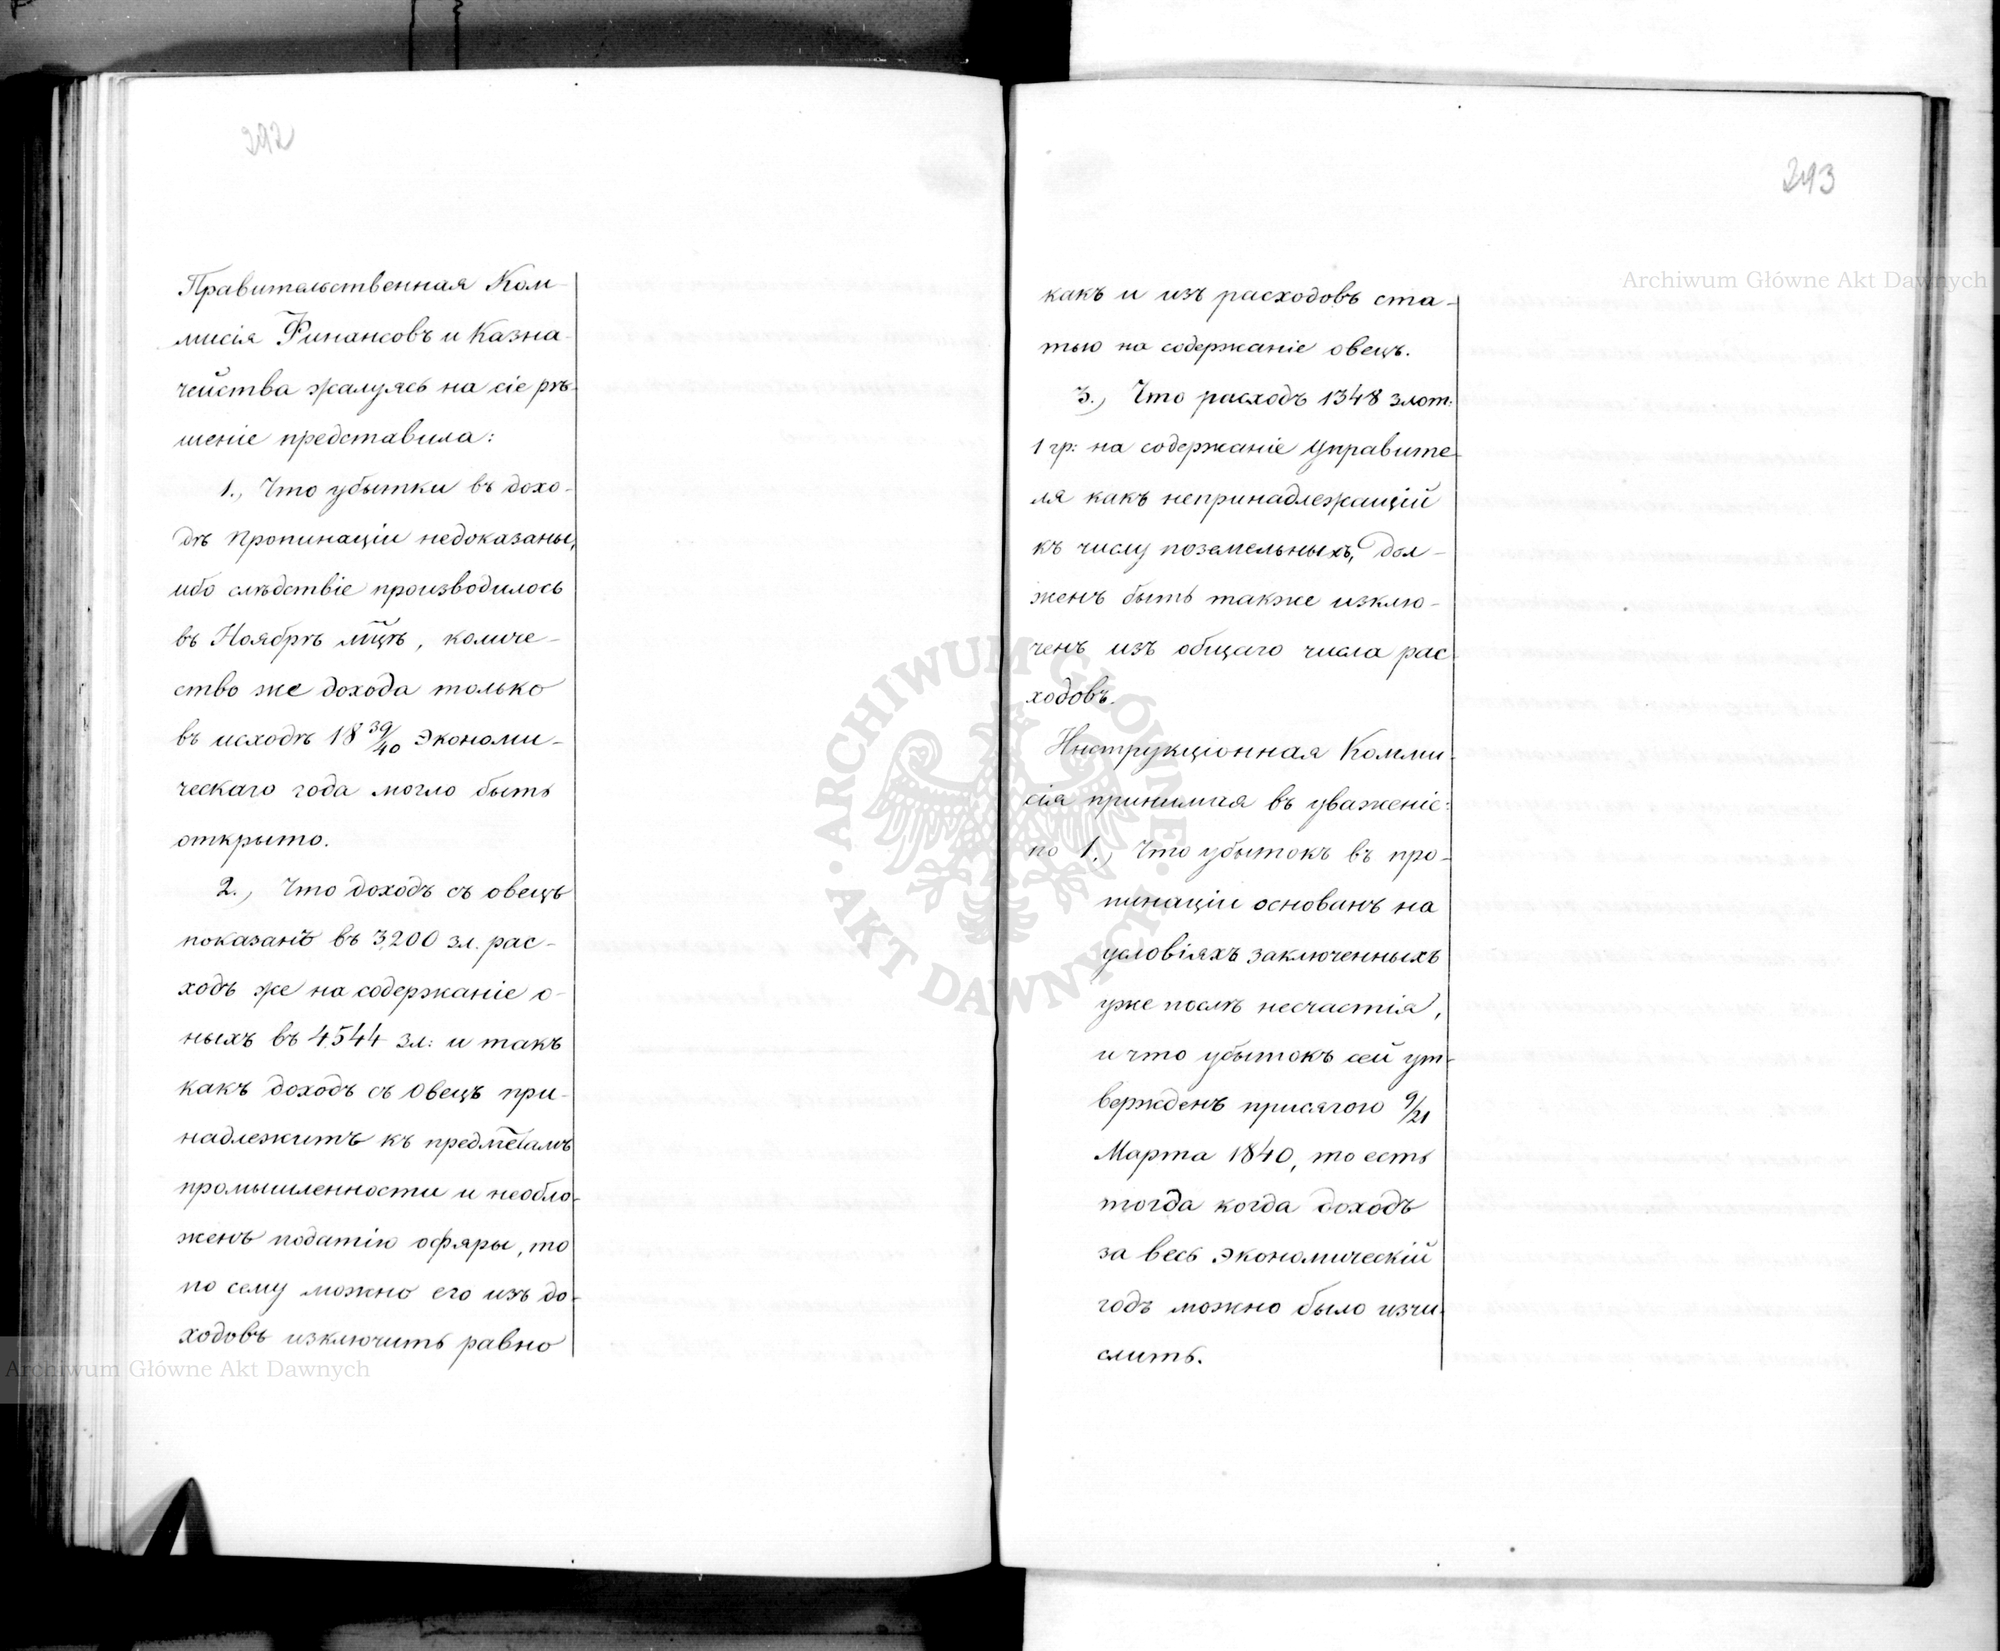 292
Правительственная Ком-
мисія Финансовъ и Казна-
чейства жалуясь на сіе рѣ-
шеніе представила:
1., Что убытки въ дохо-
дѣ пропинаціи недоказаны,
ибо слѣдствіе производилось
въ Ноябрѣ мцѣ, количе-
ство же дохода только
въ исходѣ 18 39/40 Экономи-
ческаго года могло быть
открыто.
2., Что доходъ съ овецъ
показанъ въ 3,200 зл. рас-
ходъ же на содержаніе о-
ныхъ въ 4,544 зл: и такъ
какъ доходъ съ Овецъ при-
надлежитъ къ предметамъ
промышленности и необло-
женъ податію офяры, то
по сему можно его изъ до-
ходовъ изключить равно
293
какъ и изъ расходовъ ста-
тью на содержаніе овецъ.
3., Что расходъ 1348 злот:
1 гр: на содержаніе Управите-
ля какъ непринадлежащій
къ числу поземельныхъ, дол-
женъ быть также изклю-
ченъ изъ общаго числа рас-
ходовъ.
Инструкціонная Комми-
сія принимая въ уваженіе:
по 1., Что убытокъ въ про-
пинаціи основанъ на
условіяхъ заключенныхъ
уже послѣ несчастія,
и что убытокъ сей ут-
вержденъ присягою 9/21
Марта 1840, то есть
тогда когда доходъ
за весь Экономическій
годъ можно было изчи-
слить.
Archiwum Główne Akt Dawnych
Archiwum Główne Akt Dawnych
ARCHIWUM GŁÓWNE · AKT DAWNYCH ·